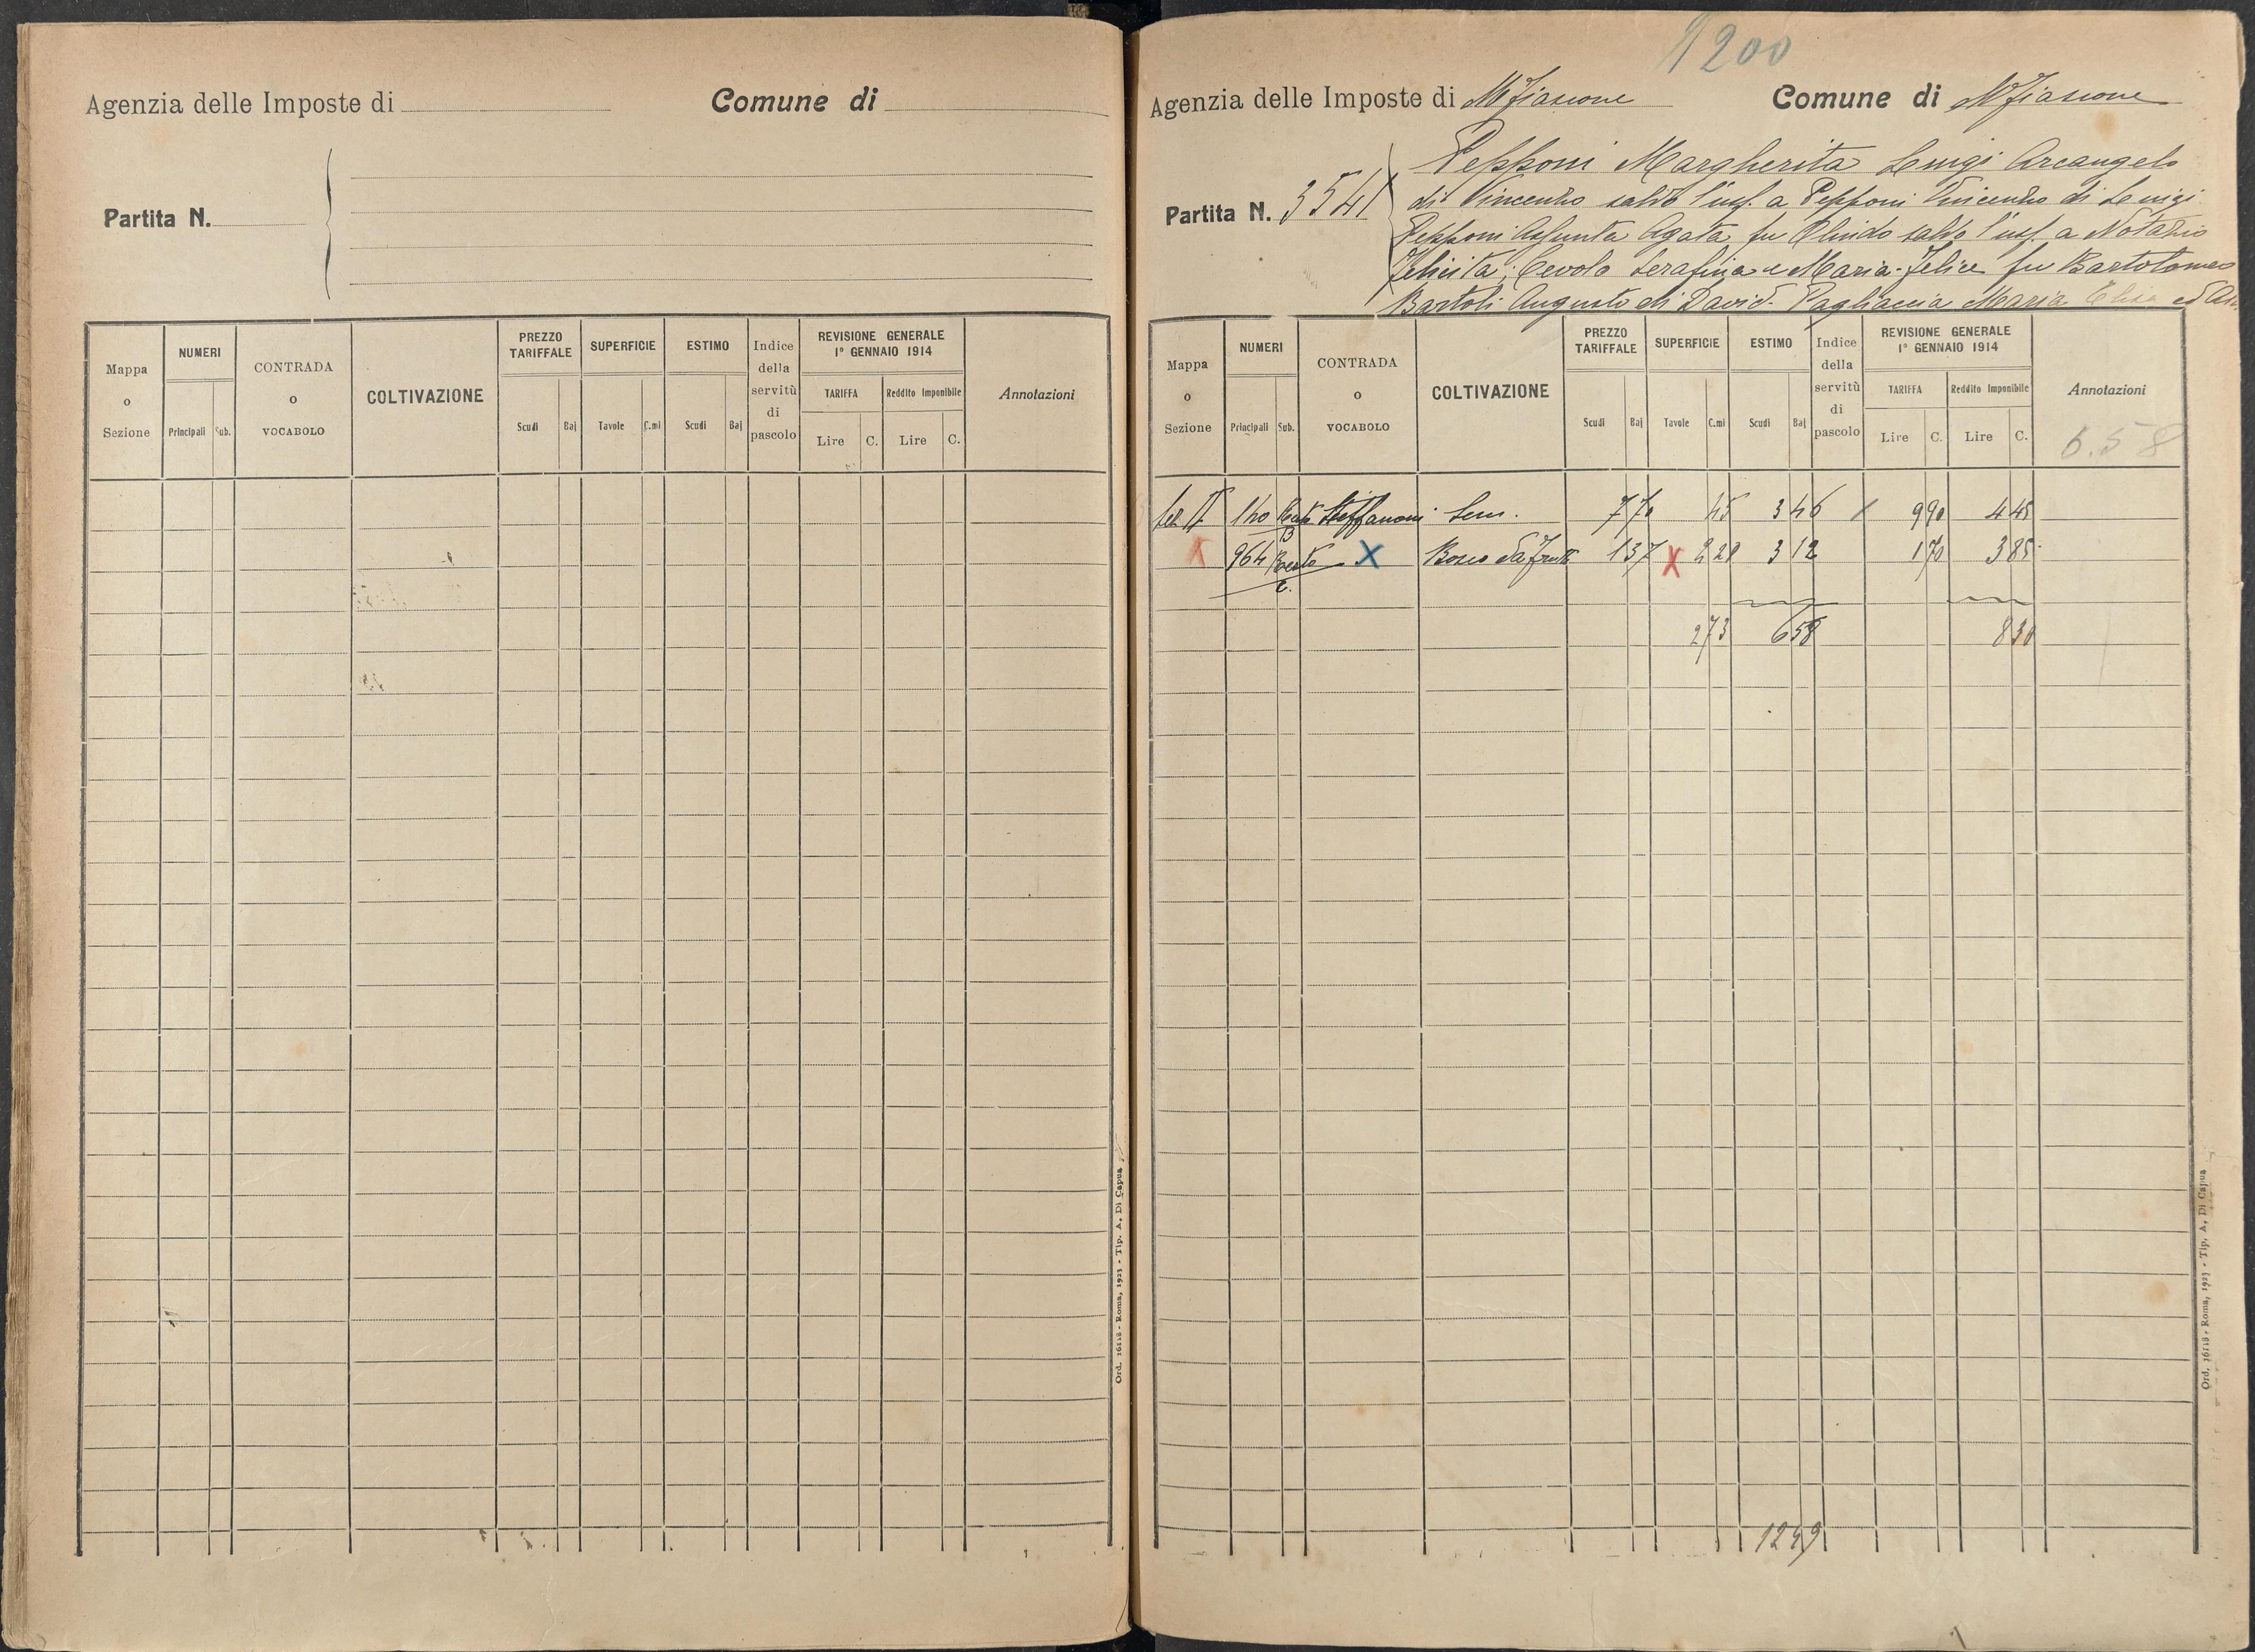 Agenzia delle Imposte di Comune di
Partita N.
Mappa o Sezione NUMERI Principali Sub. CONTRADA o VOCABOLO COLTIVAZIONE PREZZO TARIFFALE Scudi Baj SUPERFICIE Tavole C.mi ESTIMO Scudi Baj Indice della servitù di pascolo REVISIONE GENERALE 1° GENNAIO 1914 TARIFFA Lire C. Reddito Imponibile Lire C. Annotazioni
Ord. 16118 - Roma, 1923 - Tip. A. Di Capua
1200
Agenzia delle Imposte di M Fiascone Comune di M Fiascone
Partita N. 3541
Pepponi Margherita Luigi Arcangelo
di Vincenzo salvo l'usf. a Pepponi Vincenzo di Luigi
Pepponi Assunta Agata fu Olindo salvo l'usf. a Notazio
Felicita; Cevolo Serafina e Maria-Felice fu Bartolomeo
Bartoli Augusto di David. Pagliaccia Maria Elisa ed
Mappa o Sezione NUMERI Principali Sub. CONTRADA o VOCABOLO COLTIVAZIONE PREZZO TARIFFALE Scudi Baj SUPERFICIE Tavole C.mi ESTIMO Scudi Baj Indice della servitù di pascolo REVISIONE GENERALE 1° GENNAIO 1914 TARIFFA Lire C. Reddito Imponibile Lire C. Annotazioni
6.58
Sez II 140 Steffanoni Sem. 7 70 45 3 46 9 90 4 45
X 964 X Bosco da frutto 1 37 X 2 28 3 12 1 70 3 85
2 73 6 58 8 30
1249
Ord. 16118 - Roma, 1923 - Tip. A. Di Capua